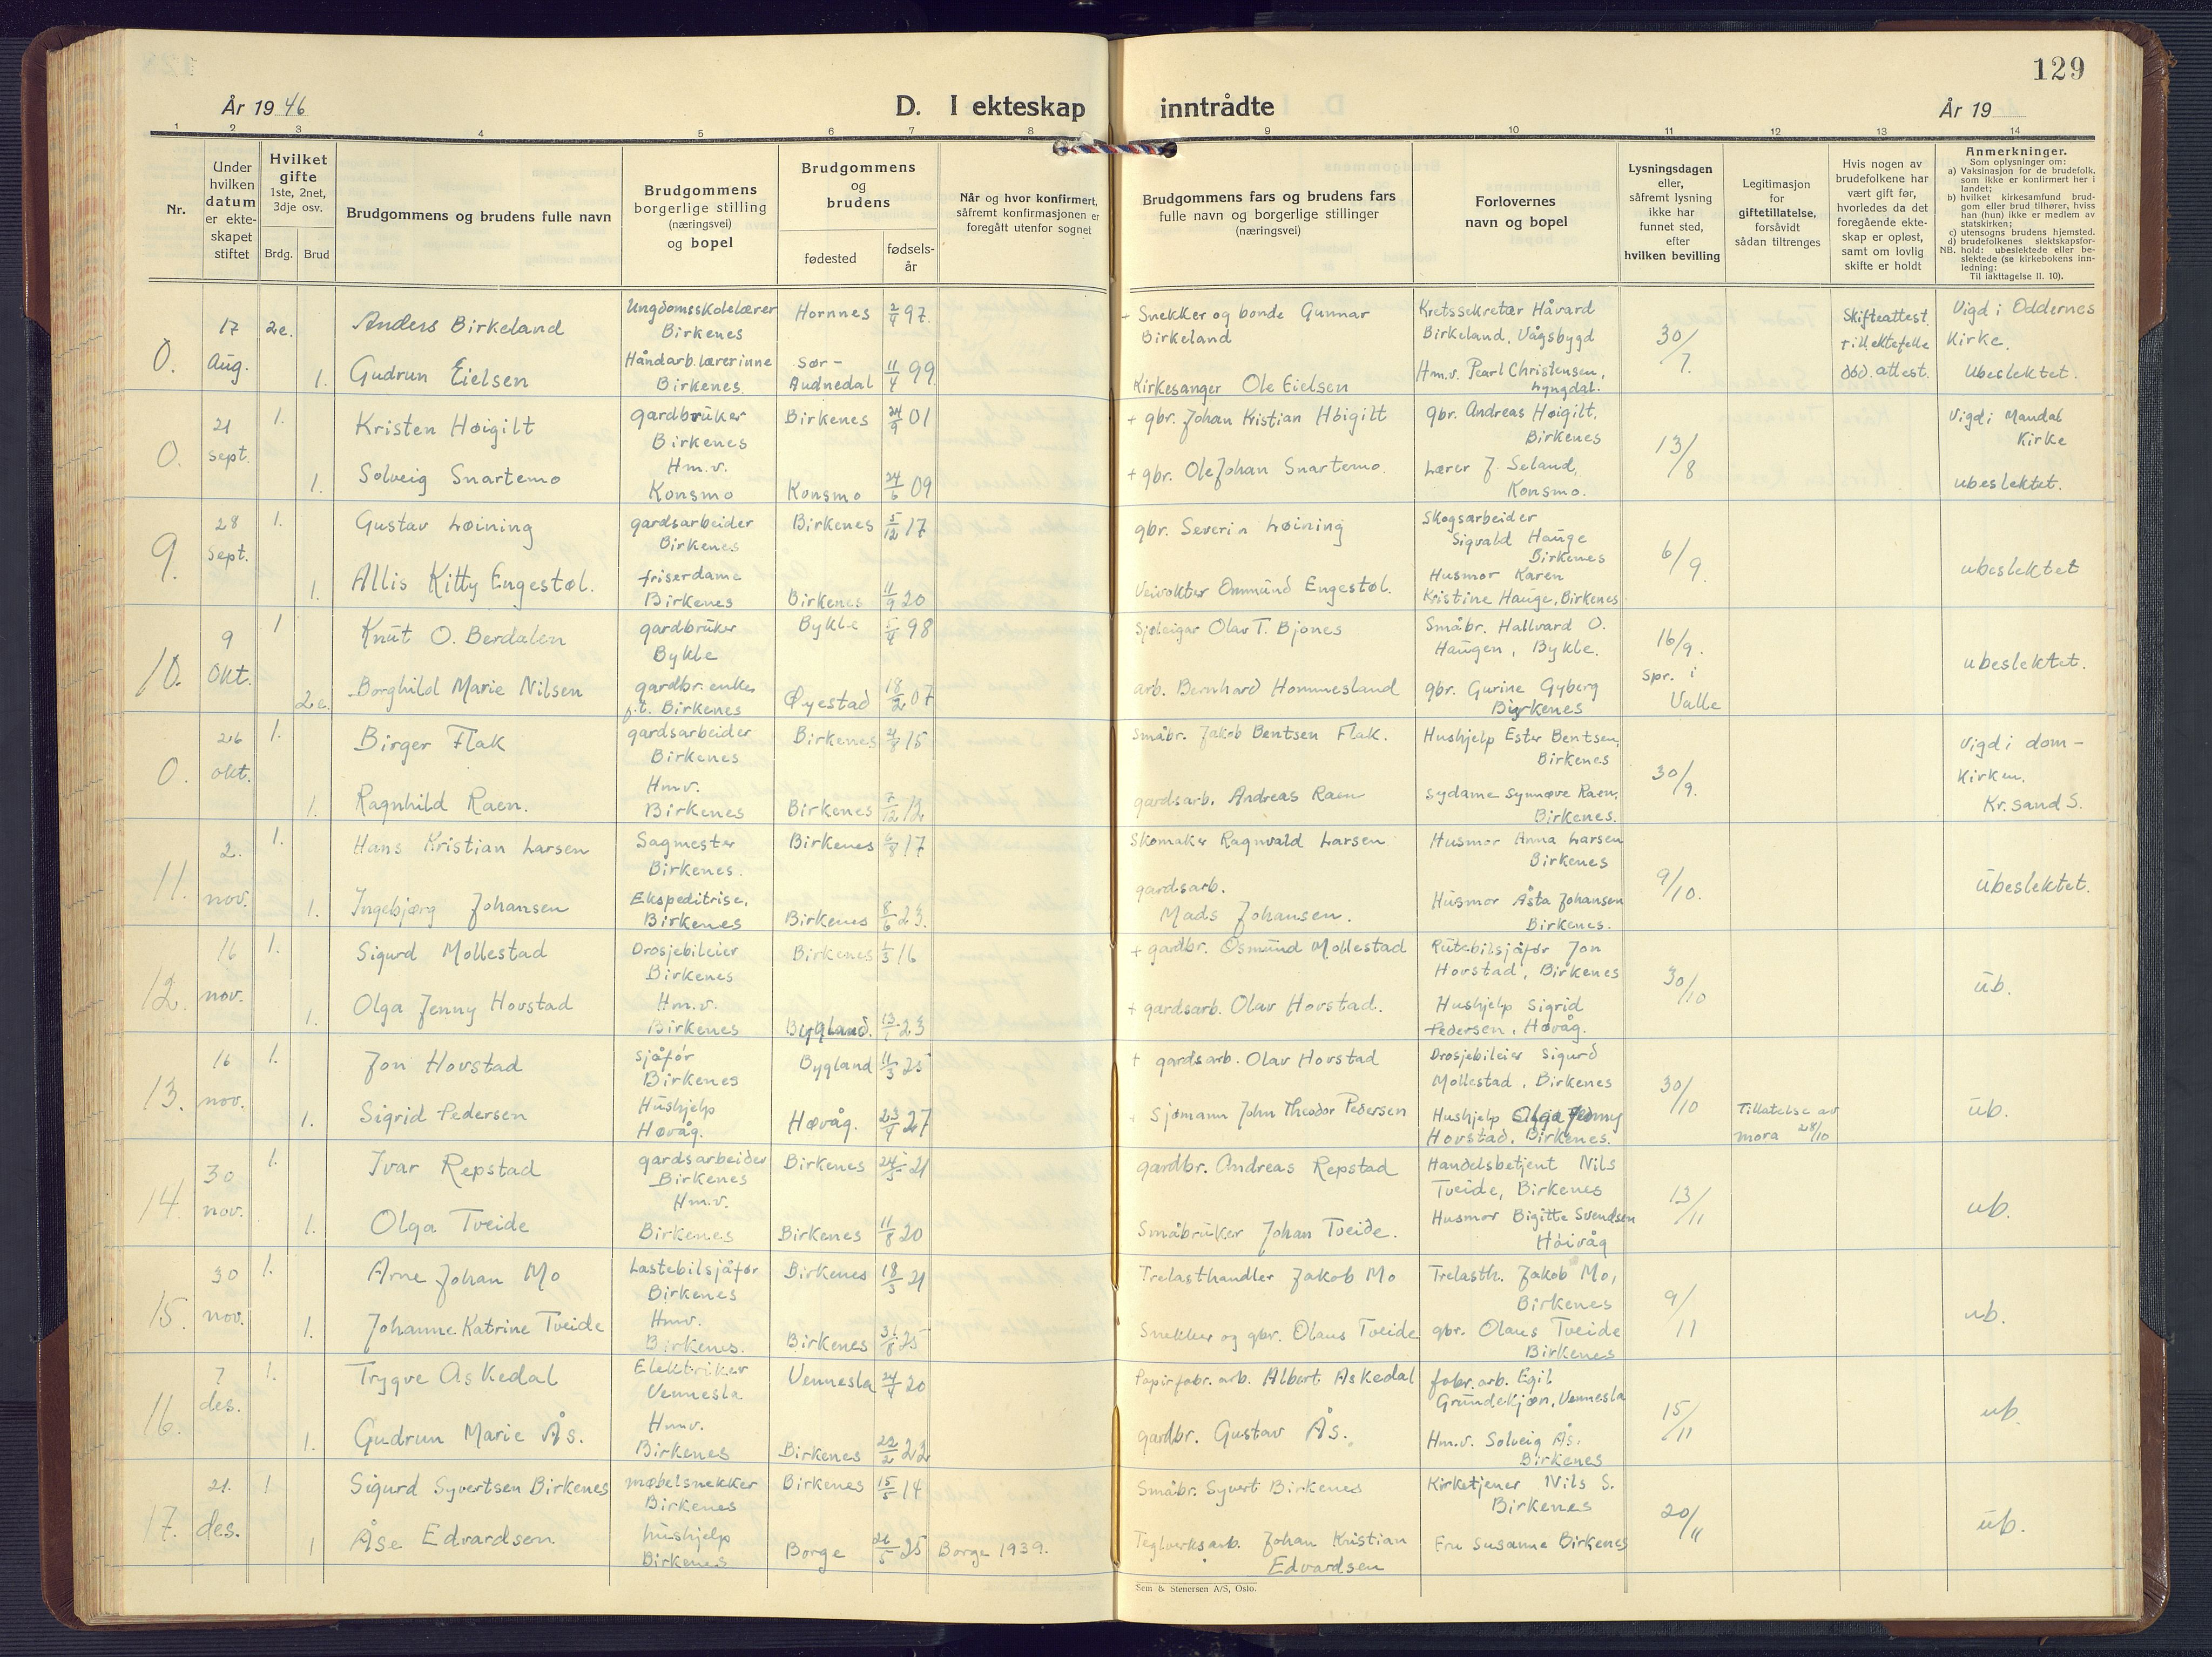 129
År 1946
D. I ekteskap inntrådte
År 19
1 2 3 4 5 6 7 8 9 10 11 12 13 14
Nr.
Under hvilken datum er ekte-skapet stiftet
Hvilket gifte
1ste, 2net, 3dje osv.
Brdg. Brud
Brudgommens og brudens fulle navn
Brudgommens borgerlige stilling (næringsvei) og bopel
Brudgommens og brudens
fødested fødsels-år
Når og hvor konfirmert, såfremt konfirmasjonen er foregått utenfor sognet
Brudgommens fars og brudens fars fulle navn og borgerlige stillinger (næringsvei)
Forlovernes navn og bopel
Lysningsdagen eller, såfremt lysning ikke har funnet sted, efter hvilken bevilling
Legitimasjon for giftetillatelse, forsåvidt sådan tiltrenges
Hvis nogen av brudefolkene har vært gift før, hvorledes da det foregående ekte-skap er opløst, samt om lovlig skifte er holdt
Anmerkninger.
Som oplysninger om:
a) Vaksinasjon for de brudefolk. som ikke er konfirmert her i landet;
b) hvilket kirkesamfund brud-gom eller brud tilhører, hviss han (hun) ikke er medlem av statskirken;
c) utensogns brudens hjemsted.
d) brudefolkenes slektskapsfor-hold: ubeslektede eller be-slektede (se kirkebokens inn-ledning:
NB.
Til iakttagelse II. 10).
0. 17 Aug. 2e. Anders Birkeland Ungdomsskolelærer Birkenes Hornnes 2/4 97. + Snekker og bonde Gunnar Birkeland Kretssekretær Håvard Birkeland, Vågsbygd 30/7. Skifteattest. till. ektefelle død. attest. Vigd i Oddernes Kirke. Ubeslektet.
1. Gudrun Eielsen Håndarb.lærerinne Birkenes. Sør-Audnedal 11/4 99 Kirkesanger Ole Eielsen Hm.v. Pearl Christensen, Lyngdal.
0. 21 sept. 1. Kristen Høigilt gardbruker Birkenes Birkenes 24/9 01 + gbr. Johan Kristian Høigilt gbr. Andreas Høigilt. Birkenes 13/8 Vigd i Mandal Kirke ubeslektet.
1. Solveig Snartemo Hm.v. Konsmo Konsmo 24/6 09 + gbr. Ole Johan Snartemo. Lærer J. Seland, Konsmo.
9. 28 sept. 1. Gustav Løining gardsarbeider Birkenes Birkenes 5/12 17 gbr. Severin Løining Skogsarbeider Sigvald Hauge Birkenes 6/9. ubeslektet
1. Allis Kitty Engestøl. friserdame Birkenes Birkenes 11/9 20 Veivokter Ommund Engestøl. Husmor Karen Kristine Hauge, Birkenes
10. 9 Okt. 1 Knut O. Berdalen gardbruker Bykle Bykle 5/4 98 Sjøleigar Olav T. Bjones Småbr. Hallvard O. Haugen, Bykle. 16/9. spr. i Valle ubeslektet.
2e. Borghild Marie Nilsen gardbr. enke, f.t. Birkenes Øyestad 18/2 07 arb. Bernhard Hommesland gbr. Gurine Gyberg Birkenes
0. 26 okt. 1. Birger Flak gardsarbeider Birkenes Birkenes 15 Småbr. Jakob Bentsen Flak. Hushjelp Ester Bentsen, Birkenes 30/9. Vigd i dom-Kirken. Kr.sand S.
1. Ragnhild Raen. Hm.v. Birkenes Birkenes 12 gardsarb. Andreas Raen sydame Synnøve Raen, Birkenes.
11. 2. nov. 1. Hans Kristian Larsen Sagmester Birkenes. Birkenes 6/8 17 Skomaker Ragnvald Larsen Husmor Anna Larsen Birkenes 9/10. Ubeslektet.
1. Ingebjørg Johansen Ekspeditrise, Birkenes Birkenes 8/6 23. gardsarb. Mads Johansen. Husmor Åsta Johansen Birkenes.
12. 16 nov. 1. Sigurd Mollestad Drosjebileier Birkenes Birkenes 1/3 16 + gardbr. Osmund Mollestad Rutebilsjåfør Jon Hovstad, Birkenes 30/10 ub.
1. Olga Jenny Hovstad Hm.v. Birkenes Bygland. 13/1 23 + gardsarb. Olav Hovstad. Hushjelp Sigrid Pedersen, Høvåg.
13. 16 nov. 1. Jon Hovstad sjåfør Birkenes Bygland 11/3 25 + gardsarb. Olav Hovstad Drosjebileier Sigurd Mollestad, Birkenes 30/10 ub.
1. Sigrid Pedersen Hushjelp Høvåg. Høvåg. 23/4 27 + Sjømann John Theodor Pedersen Hushjelp Olga Jenny Hovstad, Birkenes. Tillatelse av mora 28/10
14. 30 nov. 1. Ivar Repstad gardsarbeider Birkenes Birkenes 24/5 21 gardbr. Andreas Repstad Handelsbetjent Nils Tveide, Birkenes 13/11 ub.
1. Olga Tveide Hm.v. Birkenes Birkenes 11/8 20 Småbruker Johan Tveide. Husmor Bigitte Svendsen Høivåg
15. 30 nov. 1. Arne Johan Mo Lastebilsjåfør Birkenes Birkenes 18/5 21 Trelasthandler Jakob Mo Trelasth. Jakob Mo, Birkenes 9/11 ub.
1. Johanne Katrine Tveide Hmv. Birkenes. Birkenes 31/8 25 Snekker og gbr. Olaus Tveide gbr. Olaus Tveide Birkenes
16. 7 des. 1. Trygve Askedal Elektriker Vennesla. Vennesla 24/4 20 Papirfabr. arb. Albert Askedal fabr. arb. Egil Grundekjøn, Vennesla 15/11 ub.
1. Gudrun Marie Ås. Hmv. Birkenes Birkenes 22/2 22 gardbr. Gustav Ås. Hm.v. Solveig Ås. Birkenes
17. 21. des. 1 Sigurd Syvertsen Birkenes møbelsnekker Birkenes Birkenes 15/5 14 Småbr. Syvert Birkenes Kirketjener Nils S. Birkenes 20/11 ub.
1 Åse Edvardsen hushjelp Birkenes Borge 26/5 25 Borge 1939. Teglverksarb. Johan Kristian Edvardsen Fru Susanne Birkenes
Sem & Stenersen A/S, Oslo.